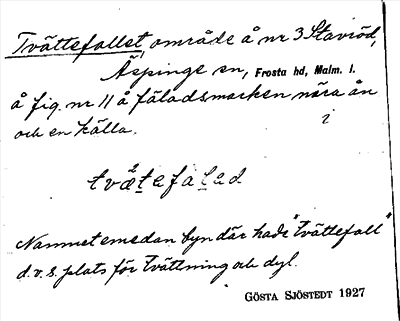 Tvättefallet, område å nr 3 Stavröd,
Äspinge sn, Frosta hd, Malm. l.
å fig. nr 11 å fäladsmarken nära ån
och en källa. i
Namnet emedan byn där hade "tvättefall"
d.v.s. plats för tvättning och dyl.
GÖSTA SJÖSTEDT 1927